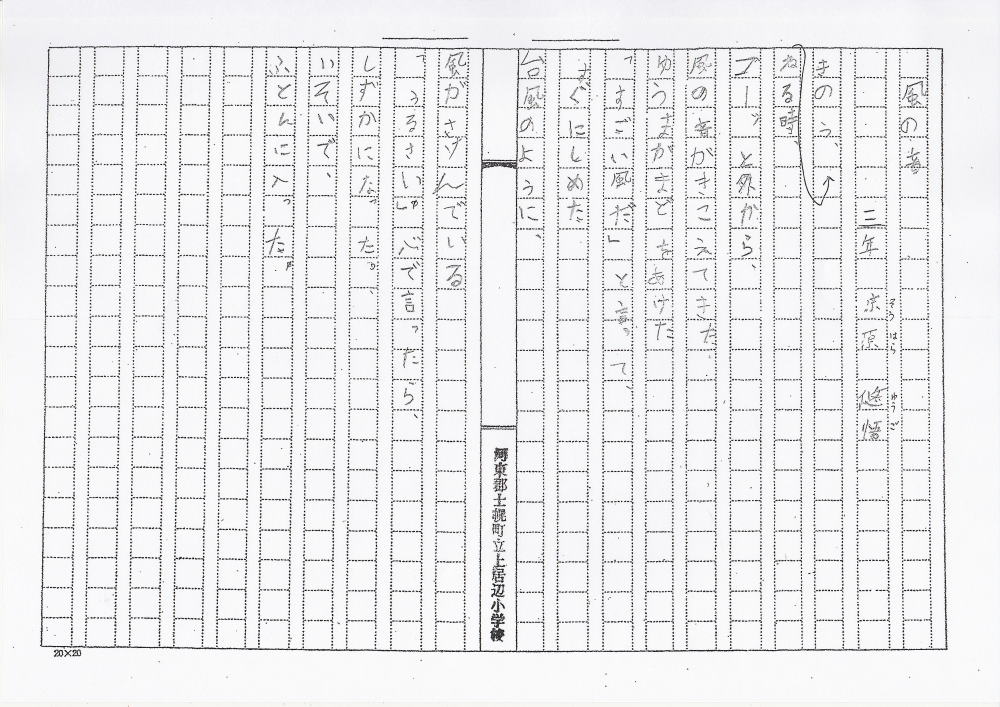 風の音
三年 宗原 悠悟
そう はら ゆう ご
きのう、
ねる時、
ゴーッと外から、
風の音がきこえてきた
ゆうまがまどをあけた
「すごい風だ」と言って、
すぐにしめた
台風のように、
風がさけんでいる
「うるさい」心で言ったら、
しずかになった。
いそいで、
ふとんに入った。
河東郡士幌町立上居辺小学校
20×20